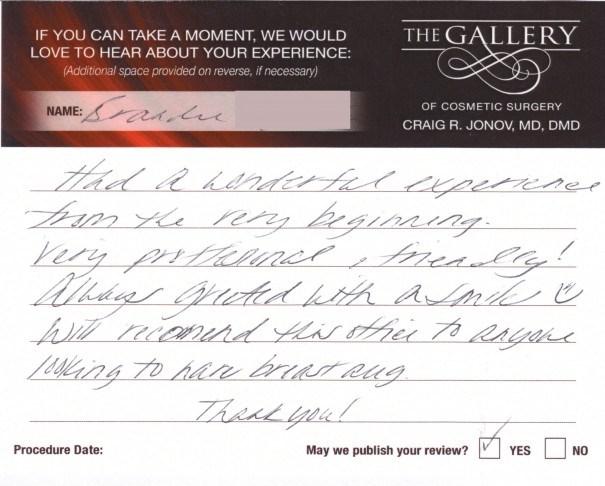 IF YOU CAN TAKE A MOMENT, WE WOULD
LOVE TO HEAR ABOUT YOUR EXPERIENCE:
(Additional space provided on reverse, if necessary)
NAME: Brandie
THE GALLERY
OF COSMETIC SURGERY
CRAIG R. JONOV, MD, DMD
Had a wonderful experience
from the very beginning.
Very professional, friendly!
Always greeted with a smile ☺
Will recomend this office to anyone
looking to have breast aug.
Thank you!
Procedure Date:
May we publish your review? ☑ YES ☐ NO